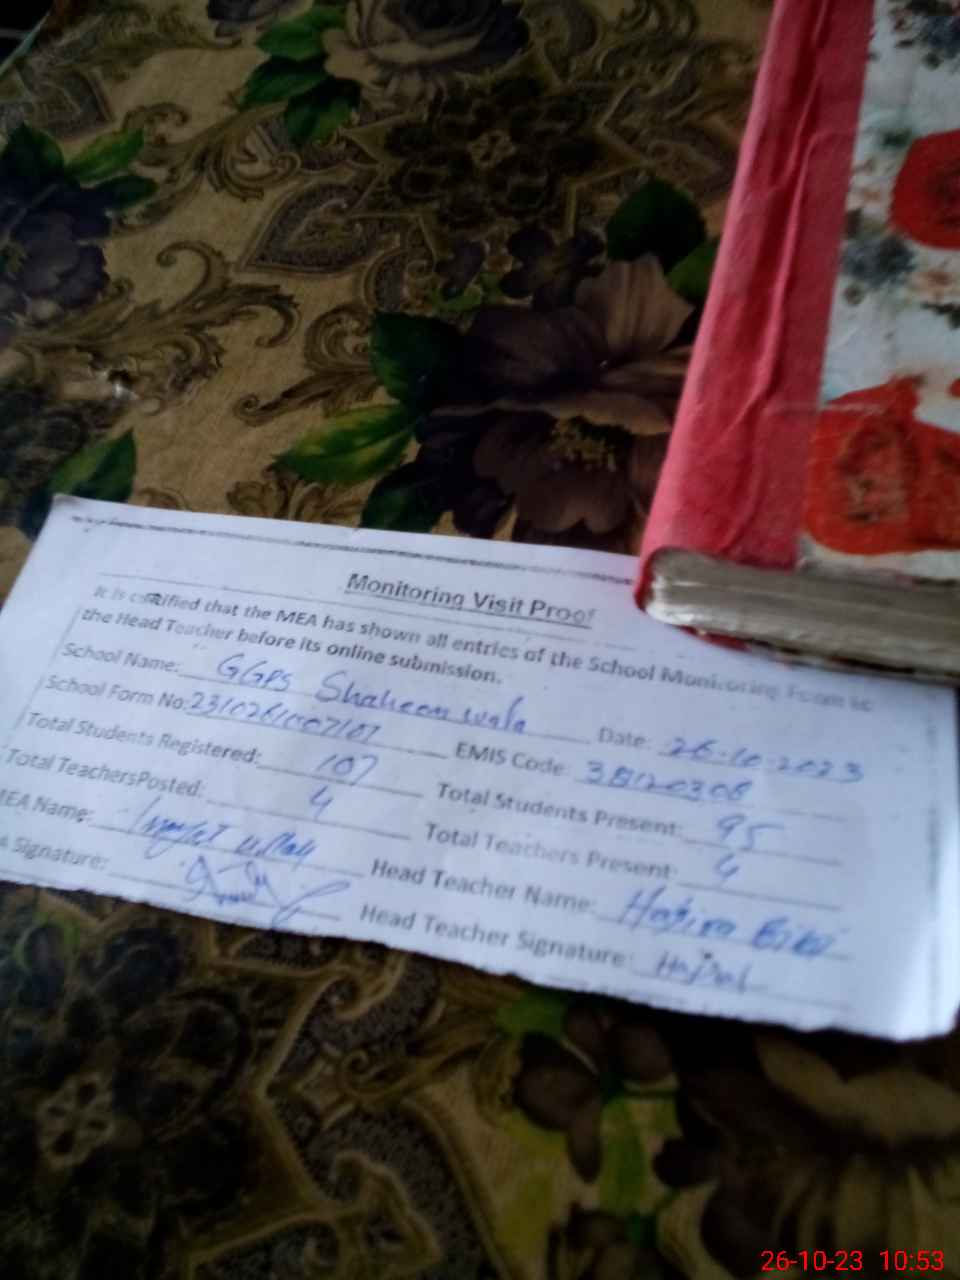 Monitoring Visit Proof
It is certified that the MEA has shown all entries of the School Monitoring Form to
the Head Teacher before its online submission.
School Name: GGPS Shaheen wala Date: 26-10-2023
School Form No: EMIS Code:
Total Students Registered: 107 Total Students Present: 95
Total TeachersPosted: 4 Total Teachers Present: 4
MEA Name: ullah Head Teacher Name: Hajira Bibi
Signature: Head Teacher Signature:
26-10-23 10:53